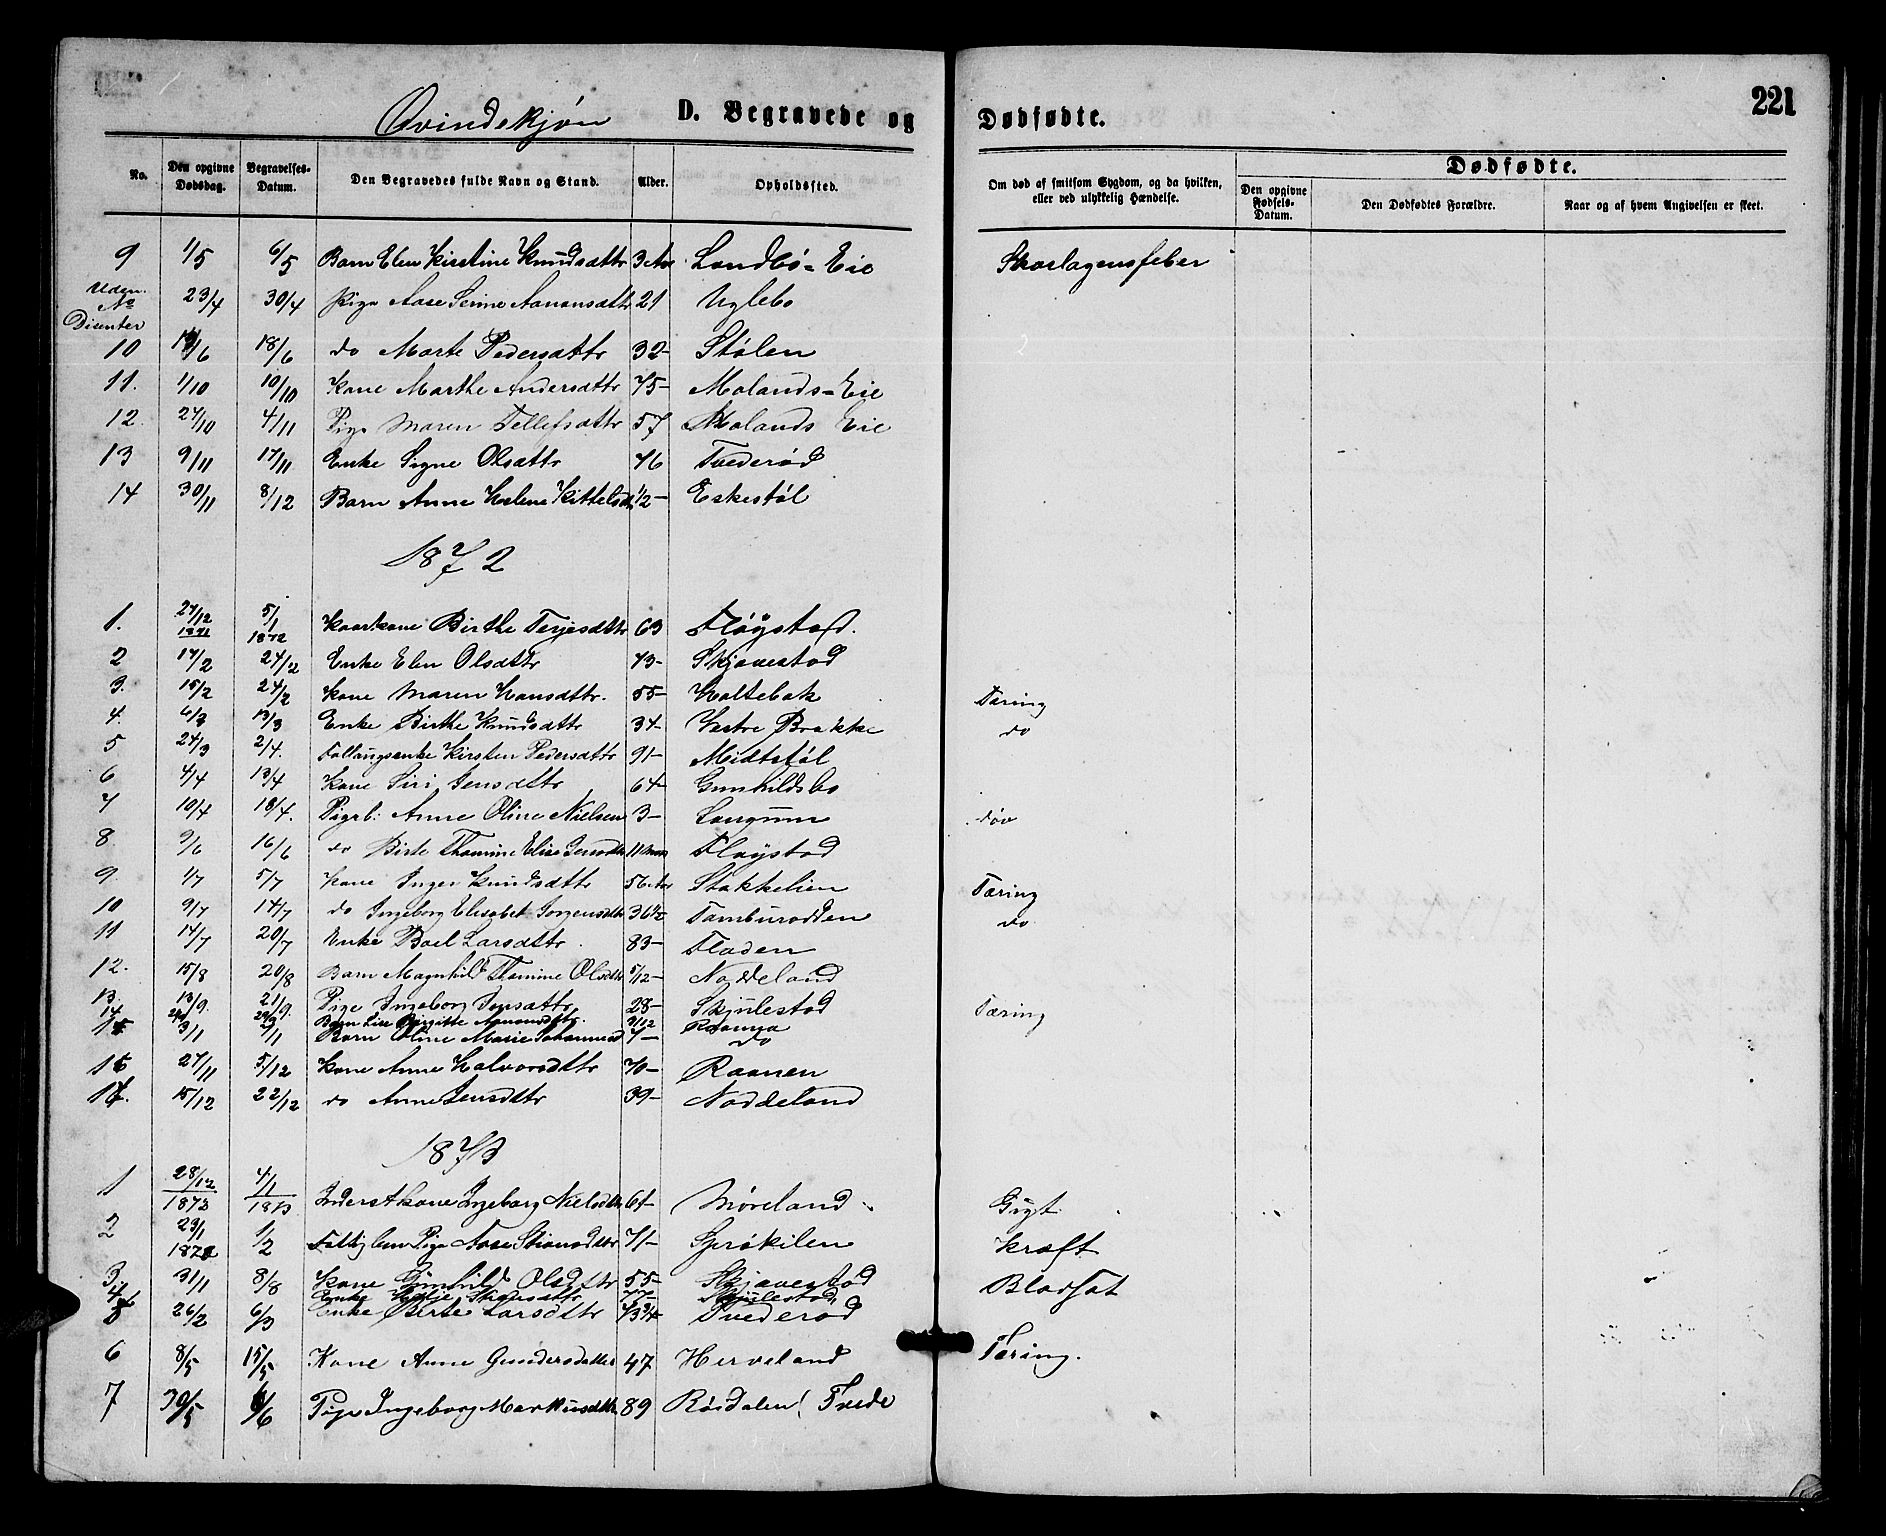 221
Qvindekjøn D. Begravede og Dødfødte.
No. Den opgivne Dødsdag. Begravelses-Datum. Den Begravedes fulde Navn og Stand. Alder. Opholdssted. Om død af smitsom Sygdom, og da hvilken, eller ved ulykkelig Hændelse. Dødfødte. Den opgivne Fødsels-Datum. Den Dødfødtes Forældre. Naar og af hvem Angivelsen er skeet.
9 1/5 6/5 Barn Elen Kirstine Knudsdttr 3 Aar Landbø-Eie Skarlagensfeber
Uden No Disenter 23/4 30/4 Pige Aase Serine Aanonsdttr 21 Uglebo
10 /6 18/6 do Marte Pedersdttr 32 - Stølen
11. 1/10 10/10 Kone Marthe Andersdttr 75 - Molands-Eie
12. 27/10 4/11 Pige Maren Tellefsdttr 57 Molands Eie
13 9/11 17/11 Enke Signe Olsdttr 76 Tvederød
14 30/11 8/12 Barn Anne Helene Kittelsdtr 1/2 - Eskestøl
1872
1. 27/12 1871 5/1 1872 Kaarkone Birthe Terjesdttr 63 Fløystad.
2 17/2 24/2 Enke Elen Olsdttr 73 - Skjævestad
3. 15/2 24/2 Kone Maren Hansdttr. 55 - Holtebak Tæring
4. 6/3 13/3 Enke Birthe Knudsdttr 34 - Vestre Brække do
5 24/3 2/4. Fattigenke Kirsten Pedersdttr 91 - Midtstøl
6 4/4 13/4 Kone Siri Jensdttr 64 Gunhildsbo
7 10/4 18/4. Pigeb: Anne Oline Nielsen 3 - Langum døv
8. 9/6 16/6 do Birte Thomine Elise Jensdtr 11 Mdr Fløystad
9 1/7 5/7 Kone Inger Knudsdttr 56 Aar Stokkelien Tæring
10 9/7 17/7 do Ingeborg Elisabet Jørgensdtr 36 1/2 Tamburodden do
11 14/7 20/7 Enke Boel Larsdttr. 83 - Fladen
12. 15/8 20/8 Barn Magnhild Thomine Olsdtr 5/12 - Noddeland
13. 13/9. 21/9. Pige Ingeborg Jensdttr 28 - Skjulestad Tæring
14 29/9 Barn Lise Birgitte Aanonsdttr. 3/12
15 3/11 /11 Barn Oline Marie Johannesd 7 - do
16 27/11 5/12 Kone Anne Halvorsdttr 70 - Raanen
17. 15/12 22/12 do Anne Jensdttr 39 - Noddeland
1873
1 28/12 1872 4/1 1873 Inderstkone Ingeborg Nielsdtr 61 - Møreland Gigt
2 29/1 1/2 Fattiglem Pige Aase Stiansdttr 71 - Sprøkilen Kræft
3 31/1 8/8 Kone Gunhild Olsdttr 55 - Skjævestad Blodsot
4 Enke Stiansdttr 77 - Skjulestad
26/2 6/3 Enke Berte Larsdttr 73 3/4 Tvederød
6 8/5 15/5 Kone Anne Gundersdatter 47 Herveland Tæring.
7 30/5 /6 Pige Ingeborg Markusdtr 89 Røsdalen / Tvede